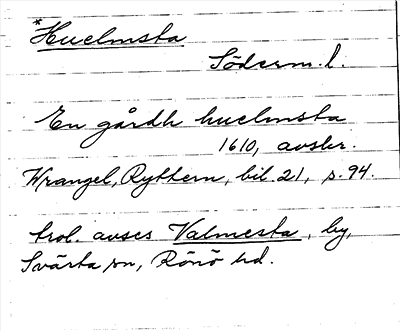 *Huelmsta
Söderm.l.
En gårdh huelmsta
1610, avskr.
Wrangel, Ryttern, bil. 21, s. 94.
trol. avses Valmesta, by,
Svärta sn, Rönö hd.